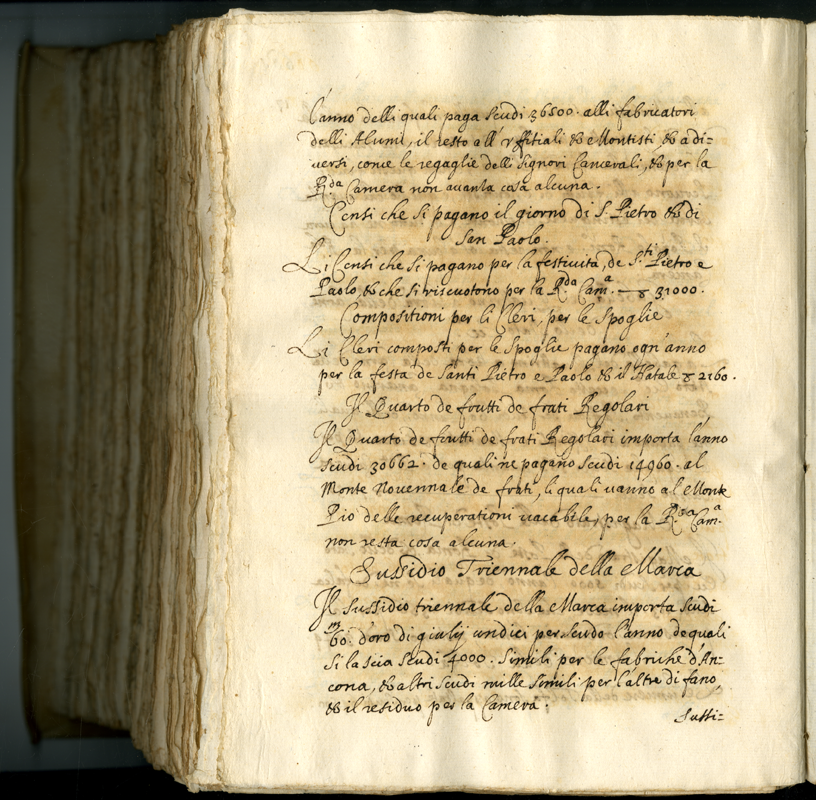 l'anno delli quali paga scudi 36500. alli fabricatori
delli Alumi, il resto all' Uffitiali & Montisti, & a di=
versi, come le regaglie delli Signori Camerali, & per la
R.da Camera non auanza cosa alcuna.
Censi che si pagano il giorno di S. Pietro & di
San Paolo.
Li Censi che si pagano per la festiuità, de S.ti Pietro e
Paolo, & che si riscuotono per la R.da Cam.a — ꝩ 31000.
Compositioni per li Cleri, per le Spoglie
Li Cleri composti per le Spoglie pagano ogn'anno
per la festa de Santi Pietro e Paolo & il Natale ꝩ 2160.
Il Quarto de frutti de frati Regolari
Il Quarto de frutti de frati Regolari importa l'anno
scudi 30662. de quali ne pagano scudi 14960. al
Monte Nouennale de frati, li quali uanno al Monte
Pio delle recuperationi uacabile, per la R.da Cam.a
non resta cosa alcuna.
Sussidio Triennale della Marca
Il sussidio triennale della Marca importa scudi
60.m d'oro di giulij undici per scudo l'anno de quali
si lascia scudi 4000. simili per le fabriche d'An=
cona, & altri scudi mille simili per l'altre di fano,
& il residuo per la Camera.
Sussi=